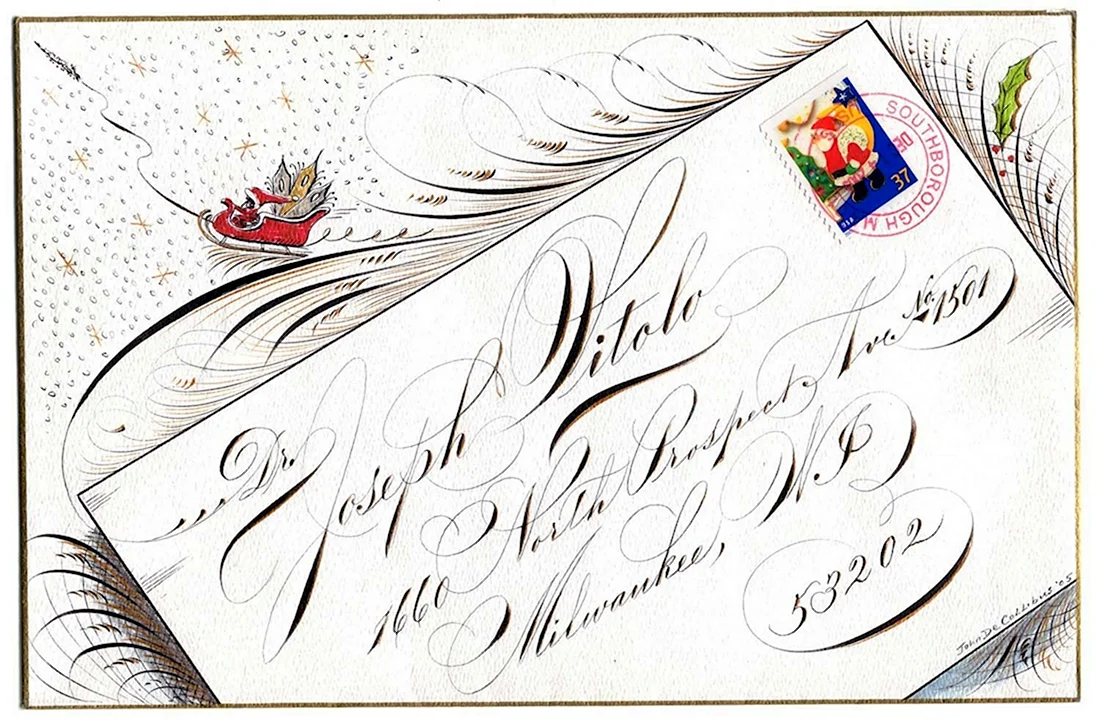 US
37
SOUTHBOROUGH M
DE
Dr. Joseph Vitolo
1660 North Prospect Ave. No. 1501
Milwaukee, WI
53202
John DeCollibus '05